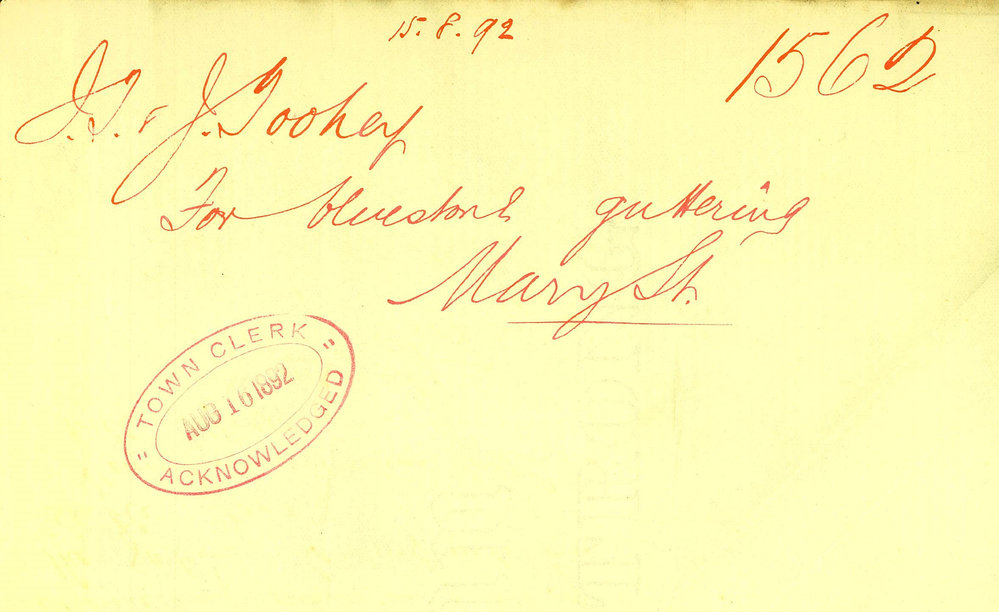 15.8.92
1562
J.T. & J. Toohey
For bluestone guttering
Mary St.
"TOWN CLERK"
AUG 16 1892
ACKNOWLEDGED